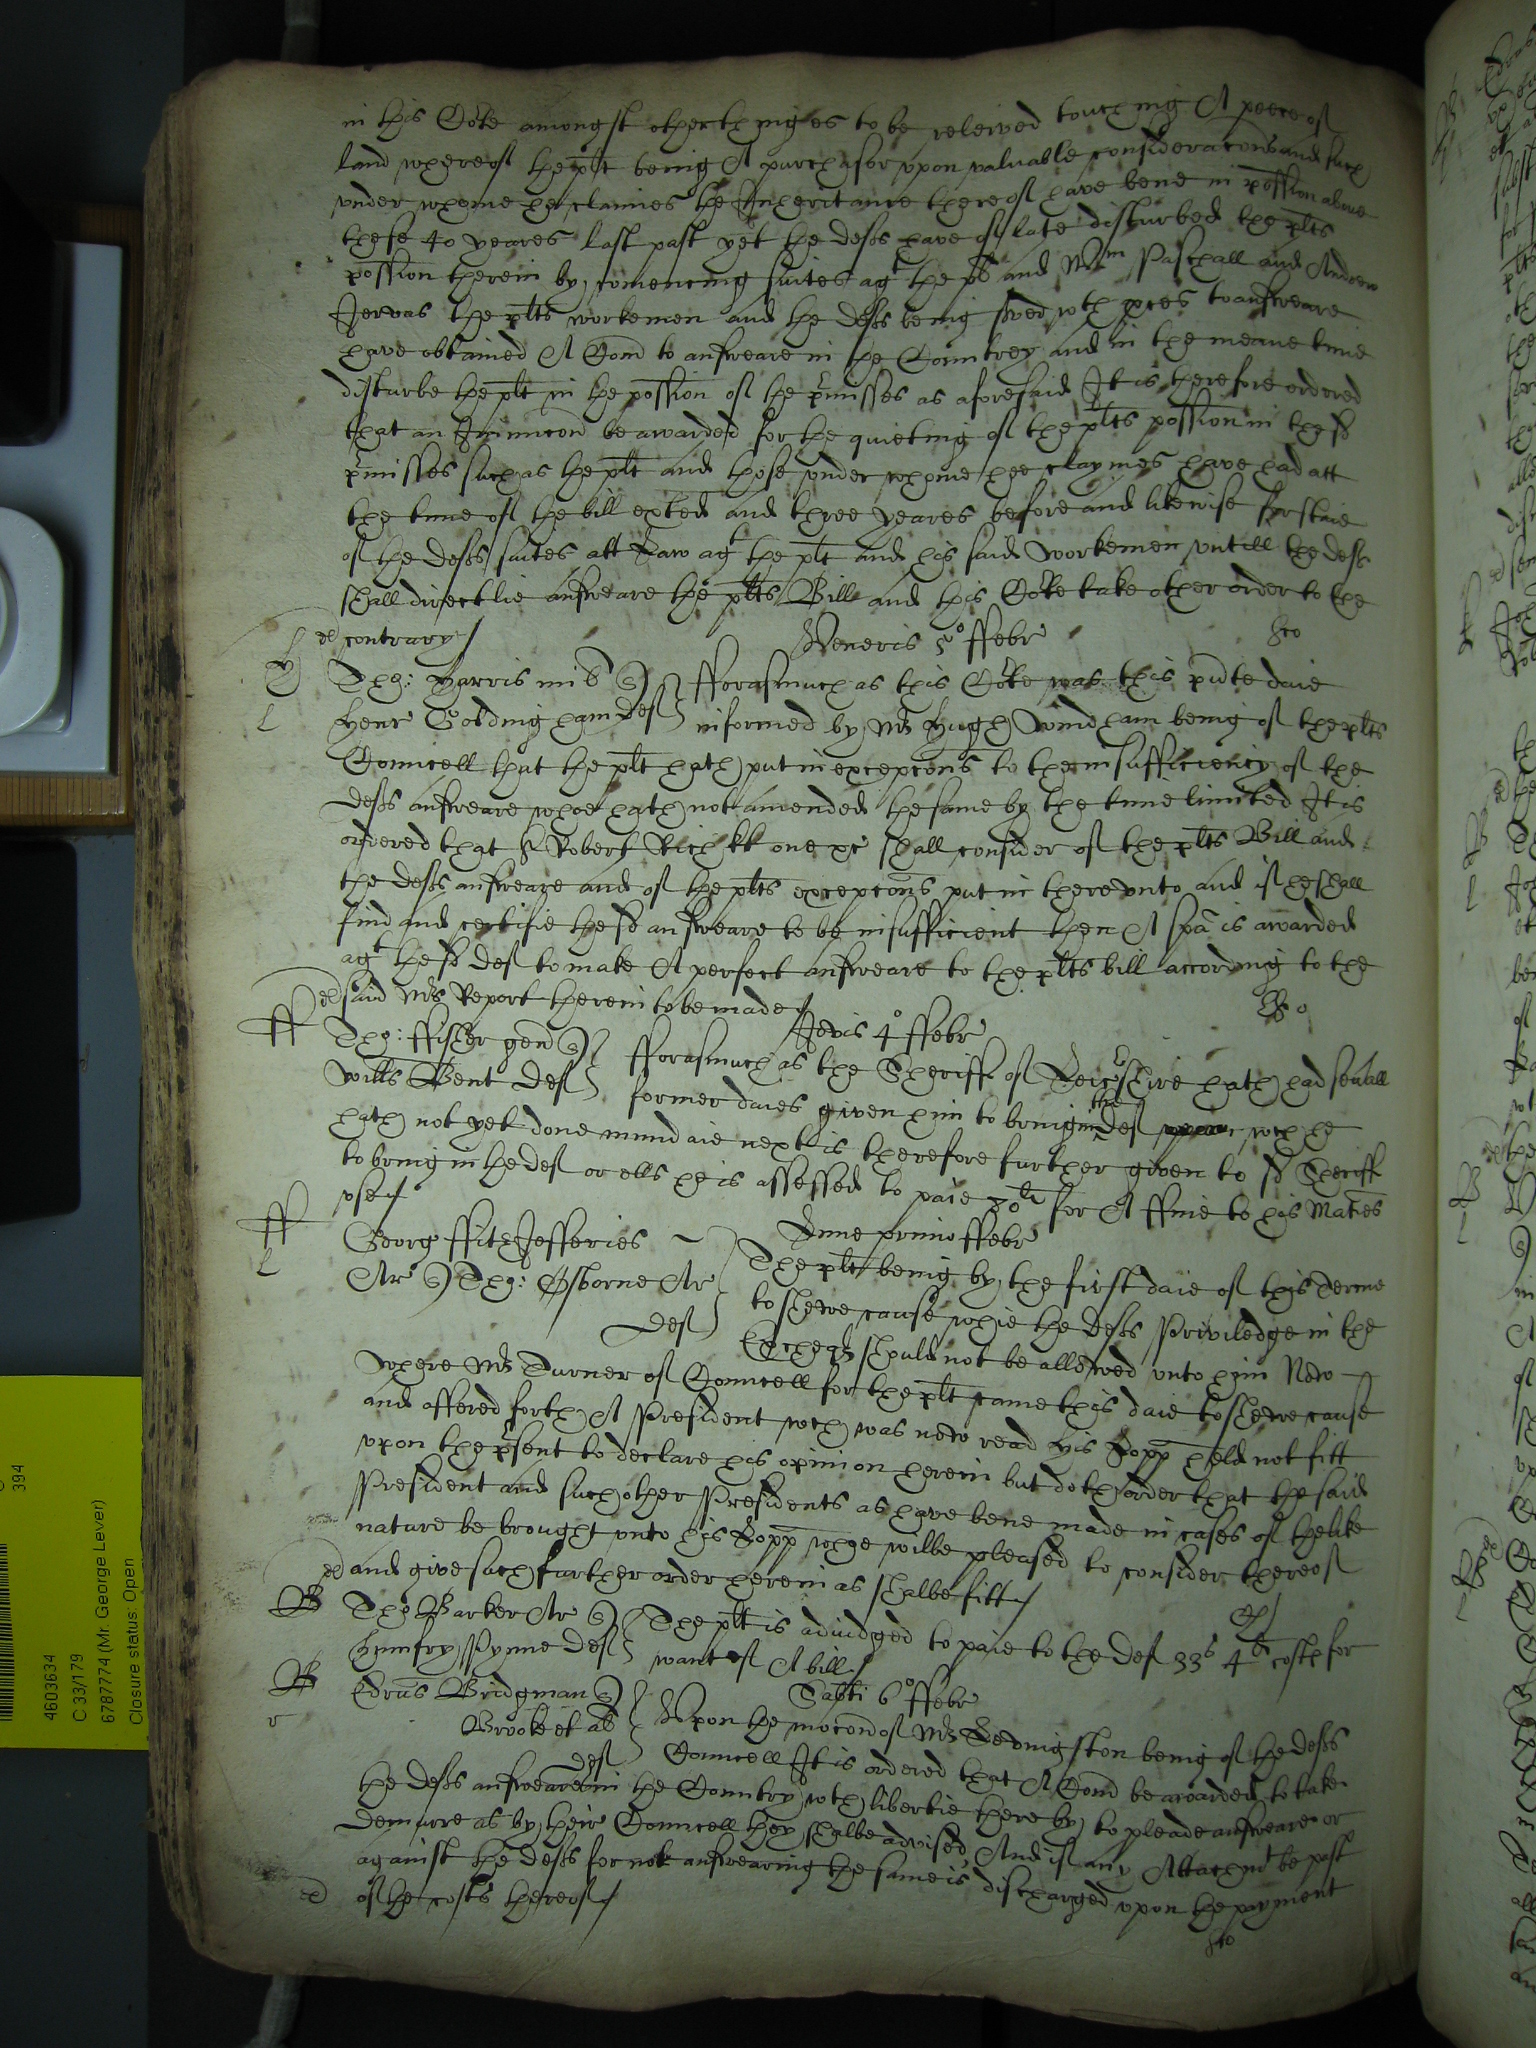 in this Co͠rte amongst other thinges to be releived touching A peece of
land whereof the plt being A purchasor vpon valuable consideracons and such
vnder whome he claimes the Inheritance thereof have bene in possion above
these 40 yeares last past yet the defts have of late disturbed the plts
possion therein by comencing suites agt the plt and Wm Paschall and Andrew
Jervas the plts workemen and the defts being served wth proces to answeare
have obtained A Com̃ to answeare in the Countrey and in the meane time
disturbe the plt in the possion of the p̃misses as aforesaid It is therefore ordered
that an Iniuncon be awarded for the quieting of the plts possion in the sd
p̃misses such as the plt and those vnder whome hee claymes have had att
the time of the bill exhited and three yeares before and likewise for staie
of the defts suites att Law agt the plt and his said workemen vntill the defts
shall directlie answeare the plts Bill and this Co͠rte take other order to the
contrary /
Veneris 5o ffebr
Tho: Harris mil
Henr Goldingham deft
fforasmuch as this Co͠rte was this pñte daie
informed by Mr Hugh Windham being of the plts
Councell that the plt hath put in excepcons to the insufficiency of the
defts answeare whoe hath not amended the same by the time limited It is
ordered that Sr Robert Rich kt one &c shall consider of the plts Bill and
the defts answeare and of the plts excepcons put in therevnto and if he shall
find and certifie the sd answeare to be insufficient then A spã is awarded
agt the sd deft to make A perfect answeare to the plts bill according to the
said Mrs Report therein to be made /
Jovis 4o ffebr
Tho: ffisher gen
Willus Bent deft
fforasmuch as the Sheriff of Leicshire hath had severall
former daies given him to bring in the deft wch he
hath not yet done mundaie next is therefore further given to sd Sheriff
to bring in the deft or ells he is assessed to paie li for A ffine to his Maties
vse /
Lune primo ffebr
Georg ffitzJefferies
Ar Tho: Osborne Ar
deft
The plt being by the first daie of this Terme
to shewe cause whie the defts Priviledge in the
Excheqr should not be allowed vnto him Now
where Mr Turner of Councell for the plt came this daie to shewe cause
and offered forth A President wch was now read his Lopp held not fitt
vpon the p̃sent to declare his opinion herein but doth order that the said
President and such other Presidents as have bene made in cases of the like
nature be brought vnto his Lopp whoe wilbe pleased to consider thereof
and give such further order herein as shalbe fitt /
Tho Barker Ar
Humfry Pynne deft
The plt is adiudged to paie to the deft 33s 4d costs for
want of A bill /
Sabti 6o ffebr
Edrus Bridgman
Brooke et al
deft
Vpon the mocon of Mr Ledingston being of the defts
Councell It is ordered that A Com̃ be awarded to take
the defts answeare in the Countrey wth libertie thereby to pleade answeare or
demurre as by their Councell they shalbe advised And if any Attachmt be past
against the defts for not answearing the same is discharged vpon the payment
of the costs thereof /
4603634
C 33/179
6787774 (Mr. George Lever)
Closure status: Open
394